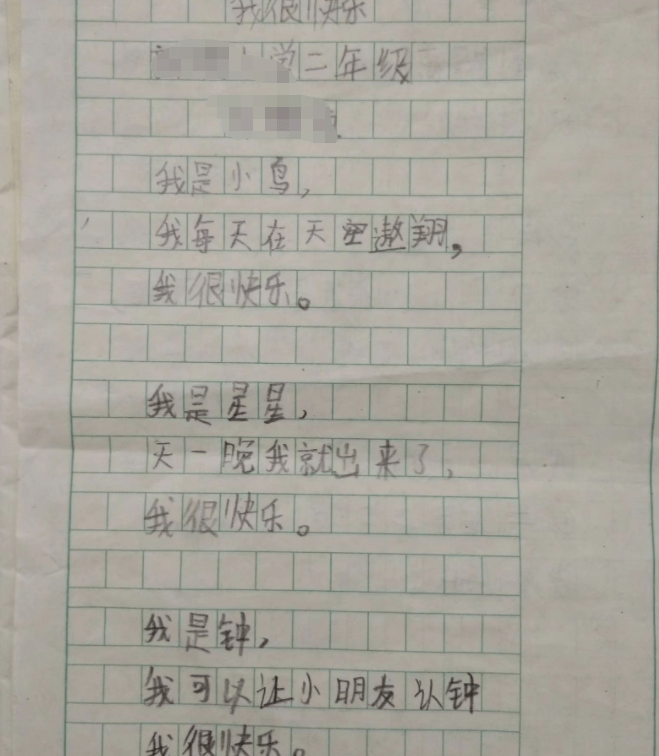 我很快乐
学二年级
我是小鸟,
我每天在天空遨翔,
我很快乐。
我是星星,
天一晚我就出来了,
我很快乐。
我是钟,
我可以让小明友认钟
我很快乐。